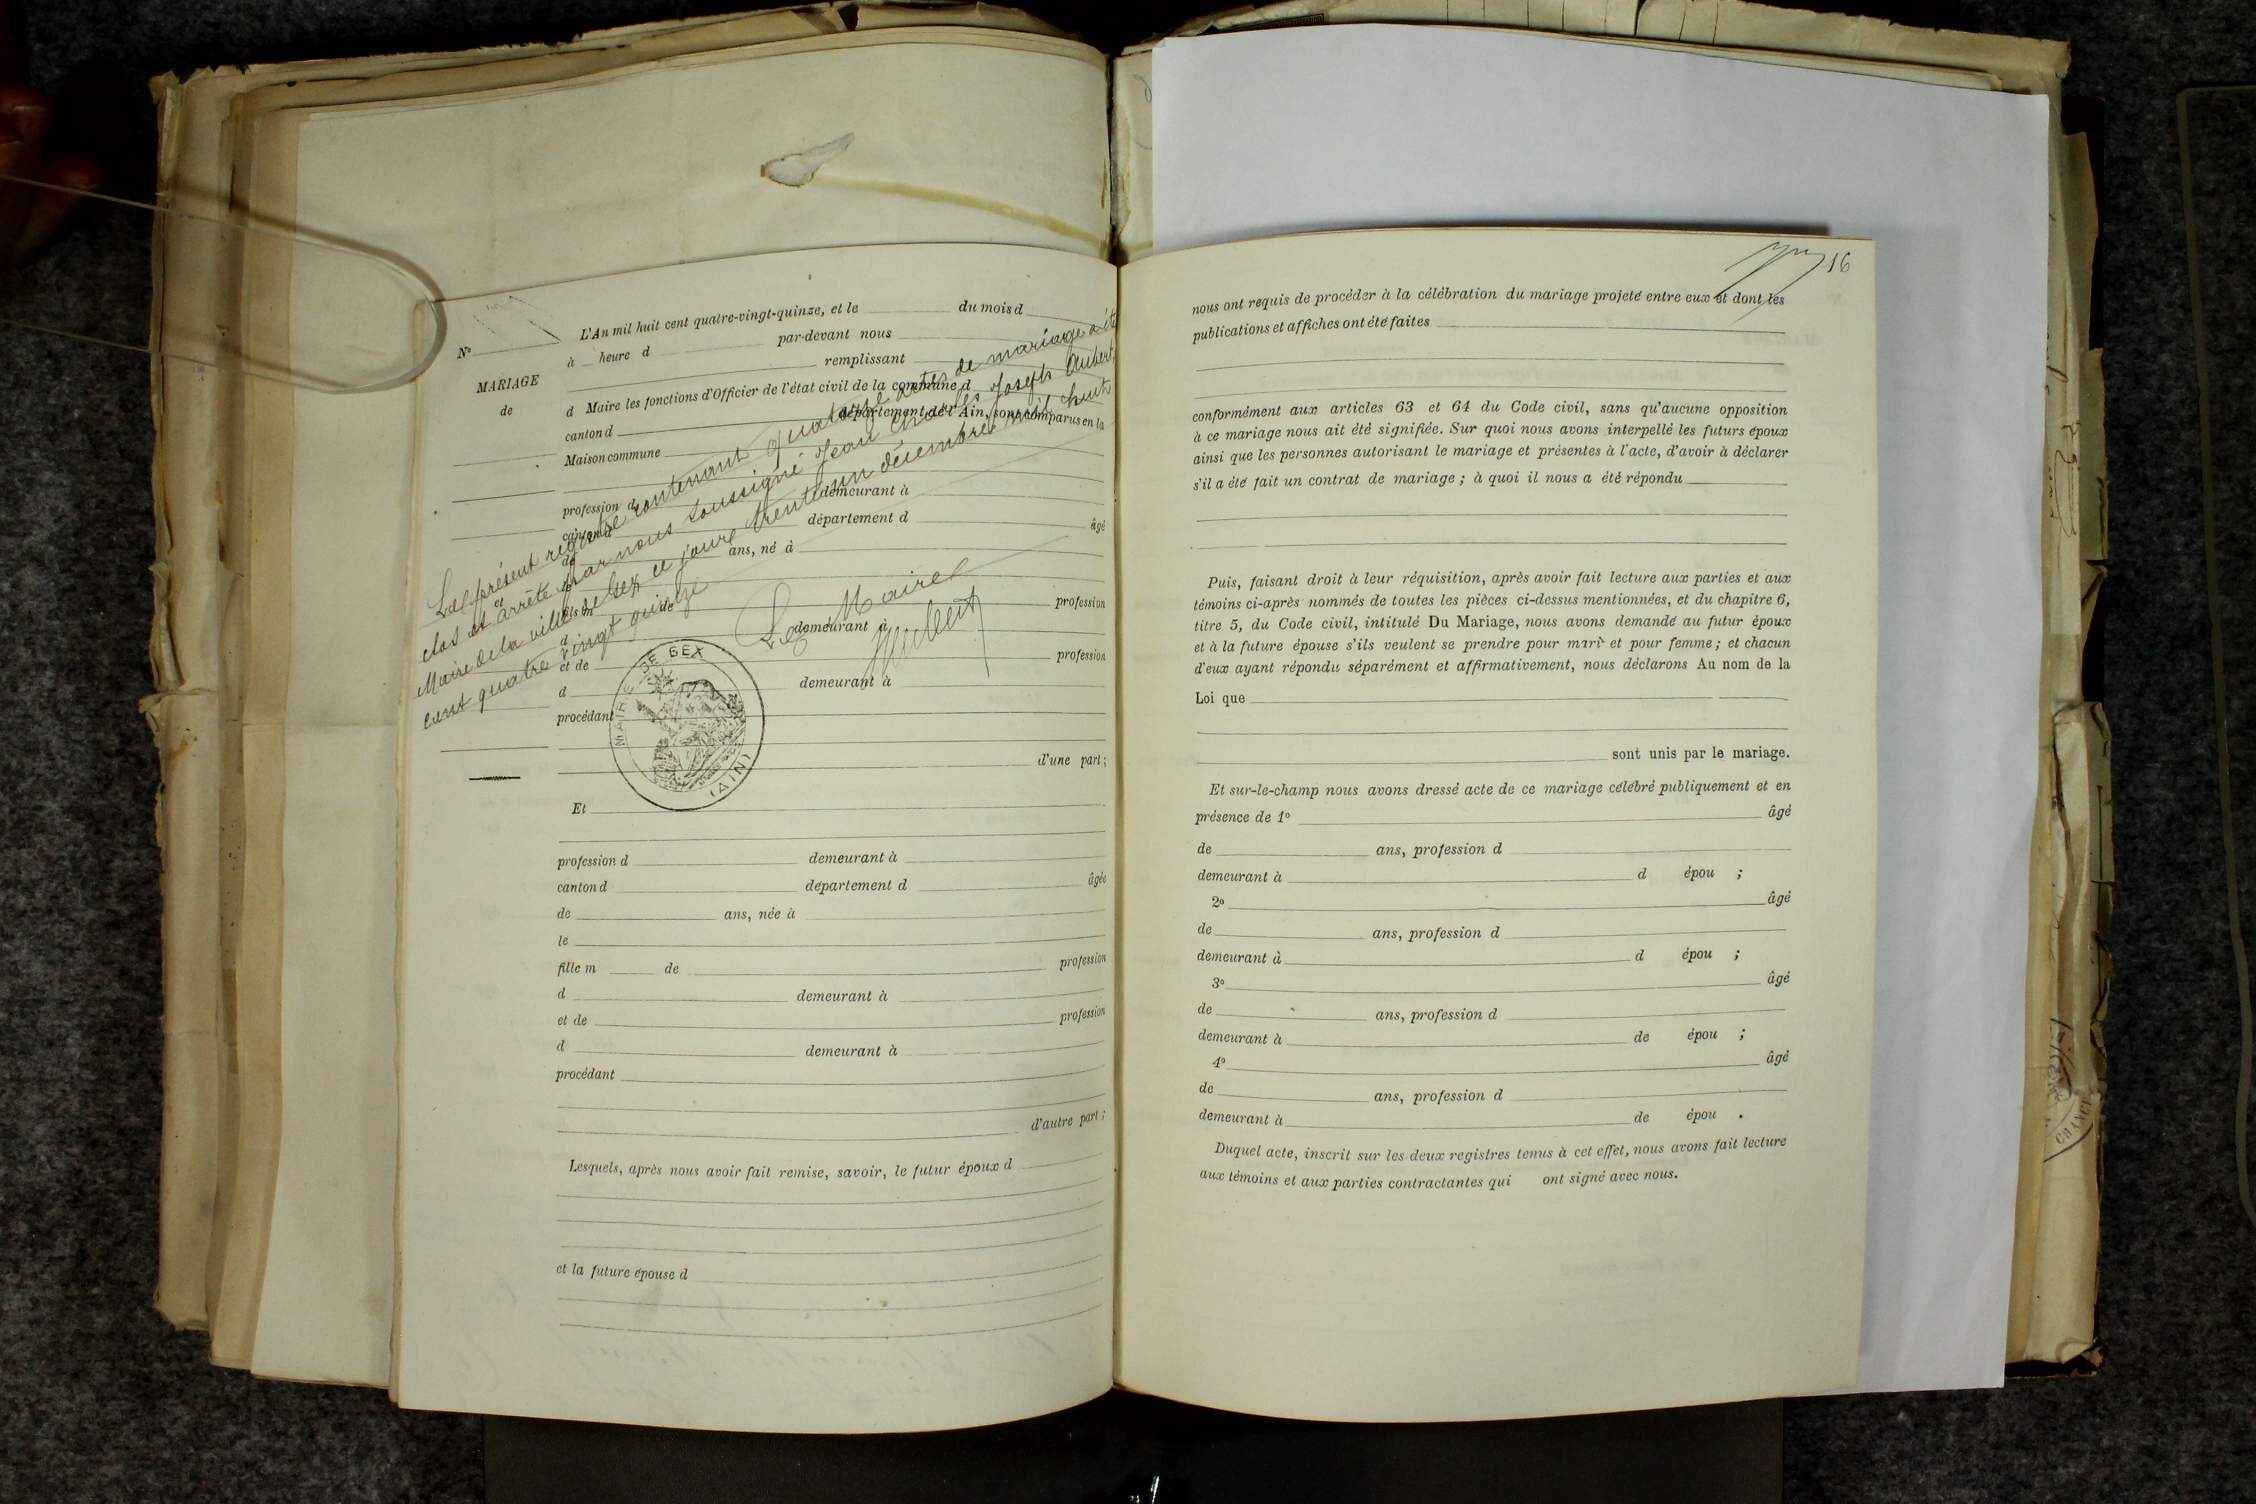 N°
MARIAGE
de
L'An mil huit cent quatre-vingt-quinze, et le du mois d
à heure d par-devant nous
remplissant
d Maire les fonctions d'Officier de l'état civil de la commune d
canton d département de l'Ain, sont comparus en la
Maison commune
profession d demeurant à
canton d département d âgé
de ans, né à
le
fils m de profession
d demeurant à
et de profession
d demeurant à
procédant
d'une part ;
Le présent registre contenant quatorze actes de mariage a été
clos et arrêté par nous soussigné Jean Charles Joseph Aubert,
Maire de la ville de Gex ce jour trente un décembre mil huit
cent quatre vingt quinze
Le Maire
Aubert
MAIRIE DE GEX
(AIN)
Et
profession d demeurant à
canton d département d âgée
de ans, née à
le
fille m de profession
d demeurant à
et de profession
d demeurant à
procédant
d'autre part ;
Lesquels, après nous avoir fait remise, savoir, le futur époux d
et la future épouse d
16
nous ont requis de procéder à la célébration du mariage projeté entre eux et dont les
publications et affiches ont été faites
conformément aux articles 63 et 64 du Code civil, sans qu'aucune opposition
à ce mariage nous ait été signifiée. Sur quoi nous avons interpellé les futurs époux
ainsi que les personnes autorisant le mariage et présentes à l'acte, d'avoir à déclarer
s'il a été fait un contrat de mariage ; à quoi il nous a été répondu
Puis, faisant droit à leur réquisition, après avoir fait lecture aux parties et aux
témoins ci-après nommés de toutes les pièces ci-dessus mentionnées, et du chapitre 6,
titre 5, du Code civil, intitulé Du Mariage, nous avons demandé au futur époux
et à la future épouse s'ils veulent se prendre pour mari et pour femme ; et chacun
d'eux ayant répondu séparément et affirmativement, nous déclarons Au nom de la
Loi que
sont unis par le mariage.
Et sur-le-champ nous avons dressé acte de ce mariage célébré publiquement et en
présence de 1° âgé
de ans, profession d
demeurant à d épou ;
2° âgé
de ans, profession d
demeurant à d épou ;
3° âgé
de ans, profession d
demeurant à de épou ;
4° âgé
de ans, profession d
demeurant à de épou .
Duquel acte, inscrit sur les deux registres tenus à cet effet, nous avons fait lecture
aux témoins et aux parties contractantes qui ont signé avec nous.